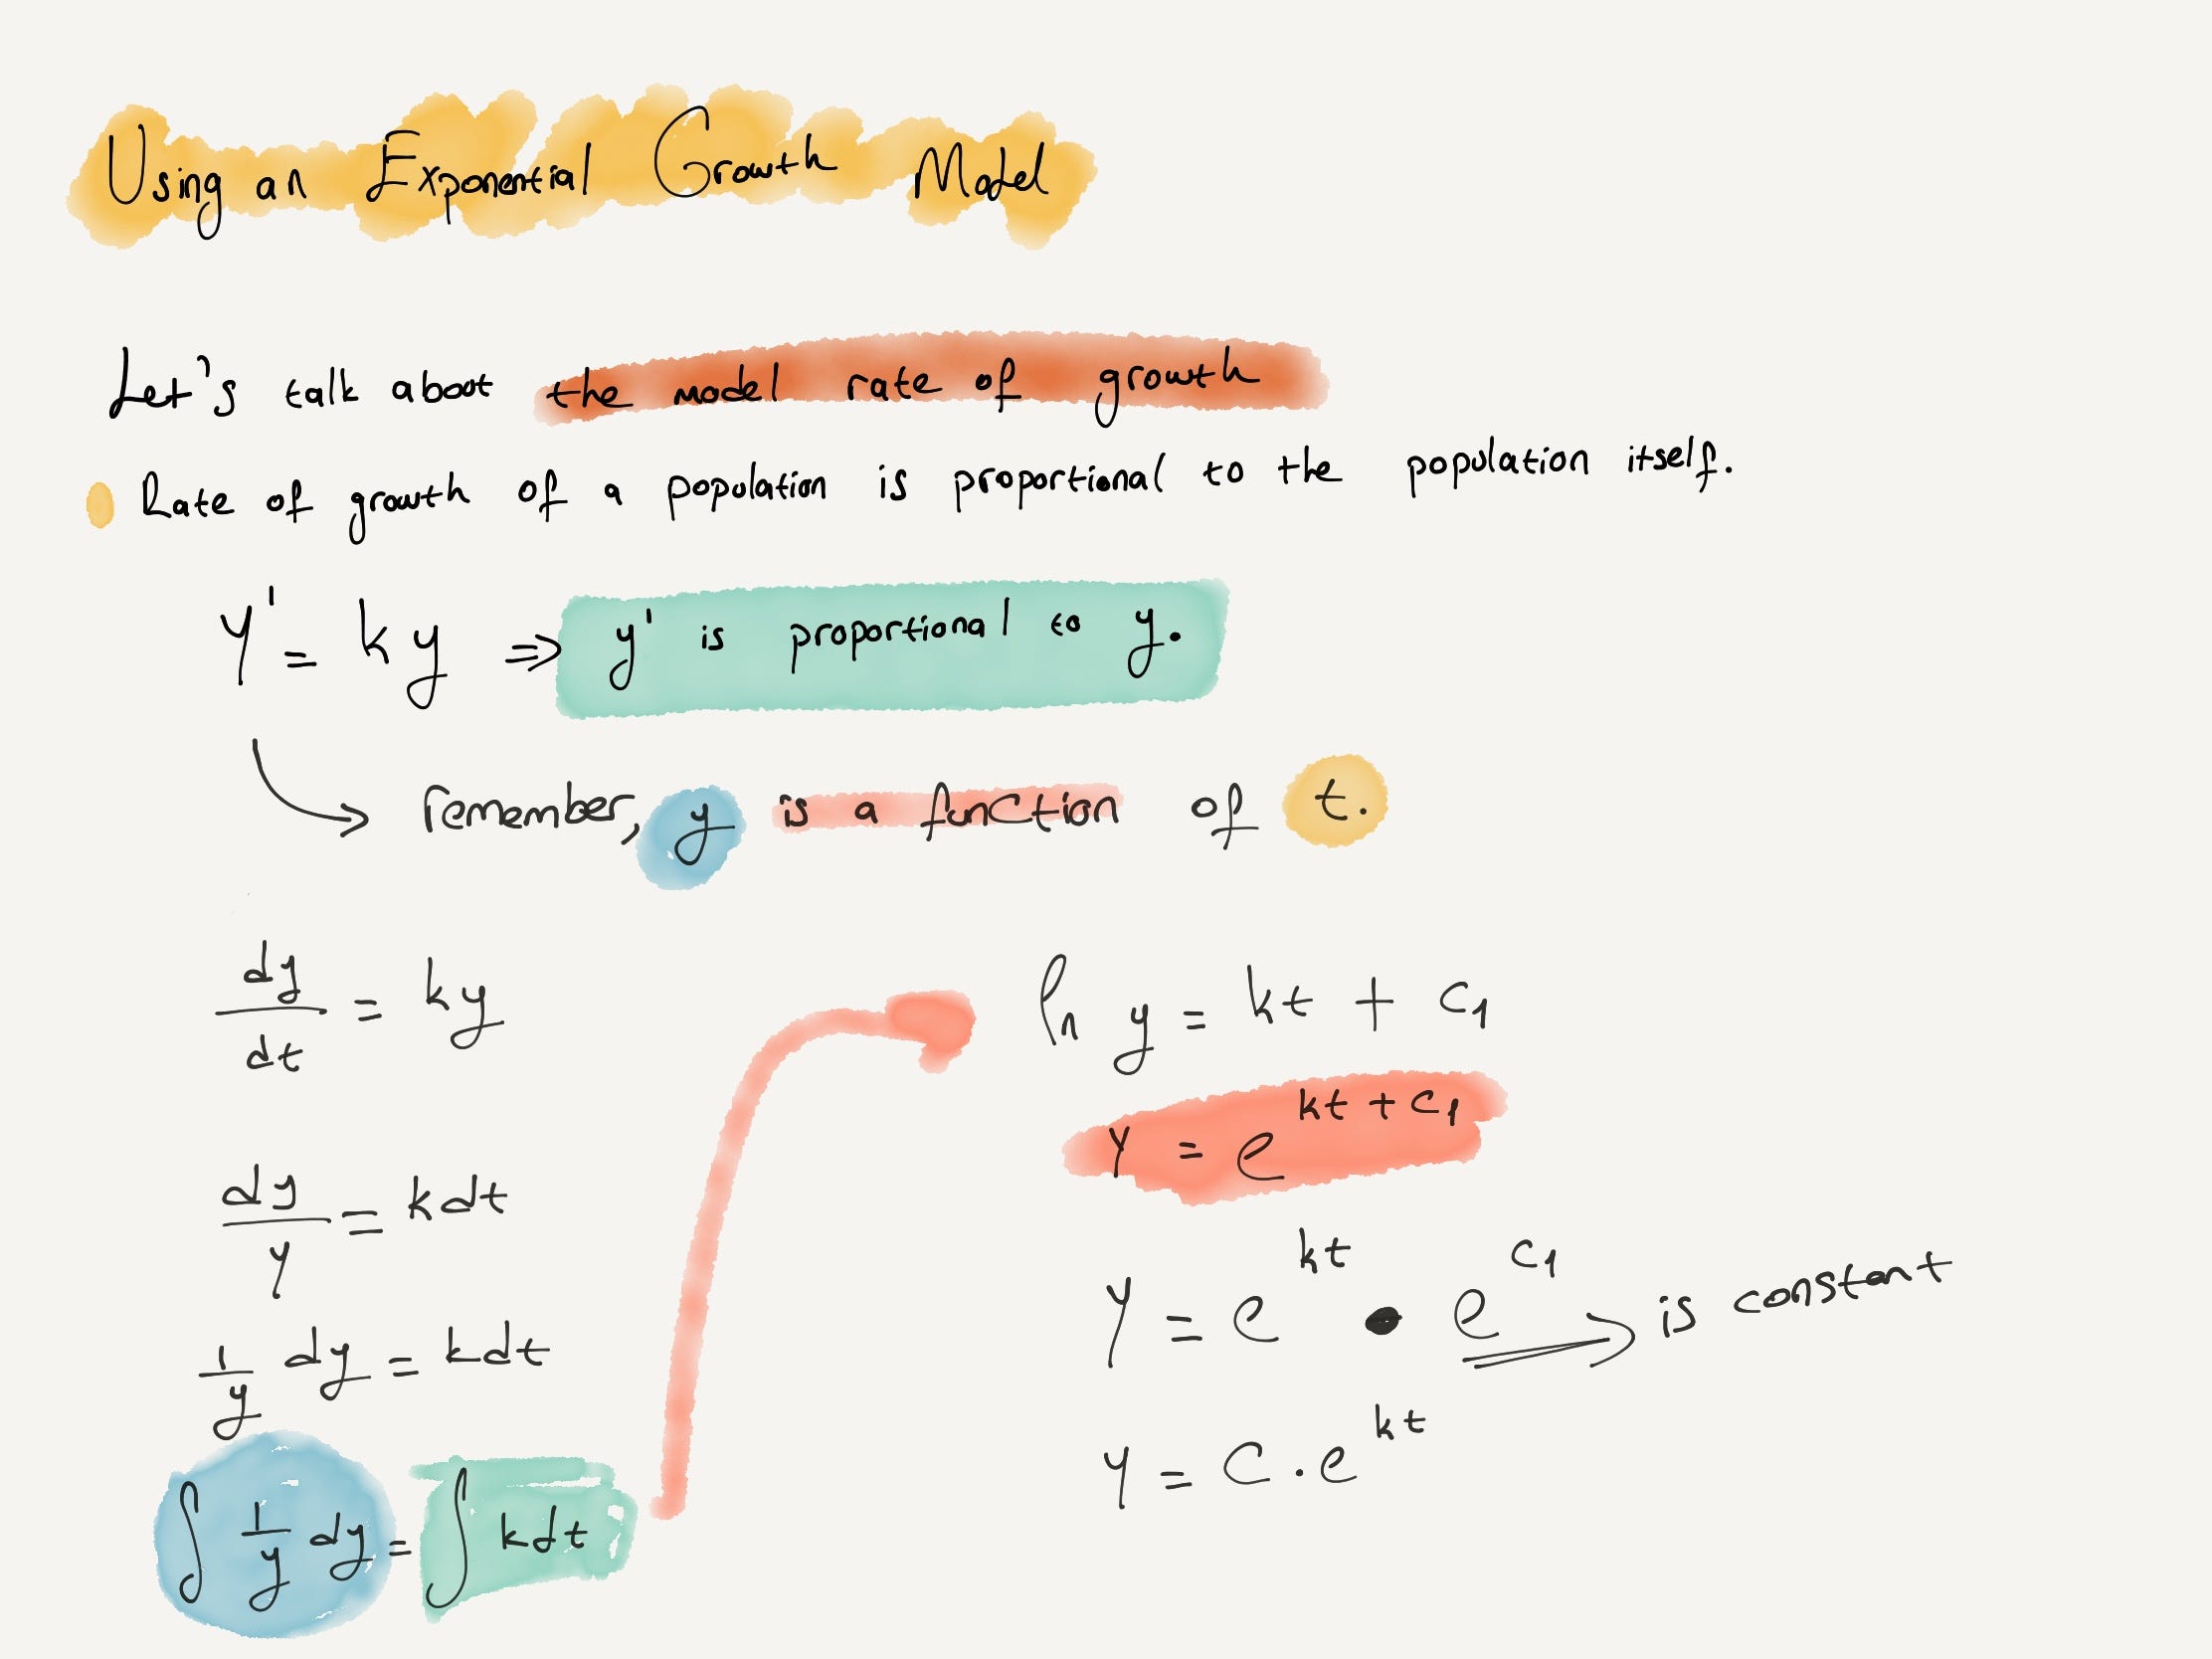 Using an Exponential Growth Model
Let's talk about the model rate of growth
Rate of growth of a population is proportional to the population itself.
y' = ky ⇒ y' is proportional to y.
remember, y is a function of t.
dy/dt = ky
dy/y = kdt
1/y dy = kdt
∫ 1/y dy = ∫ kdt
ln y = kt + c₁
y = e^(kt + c₁)
y = e^(kt) • e^(c₁) → is constant
y = C . e^(kt)